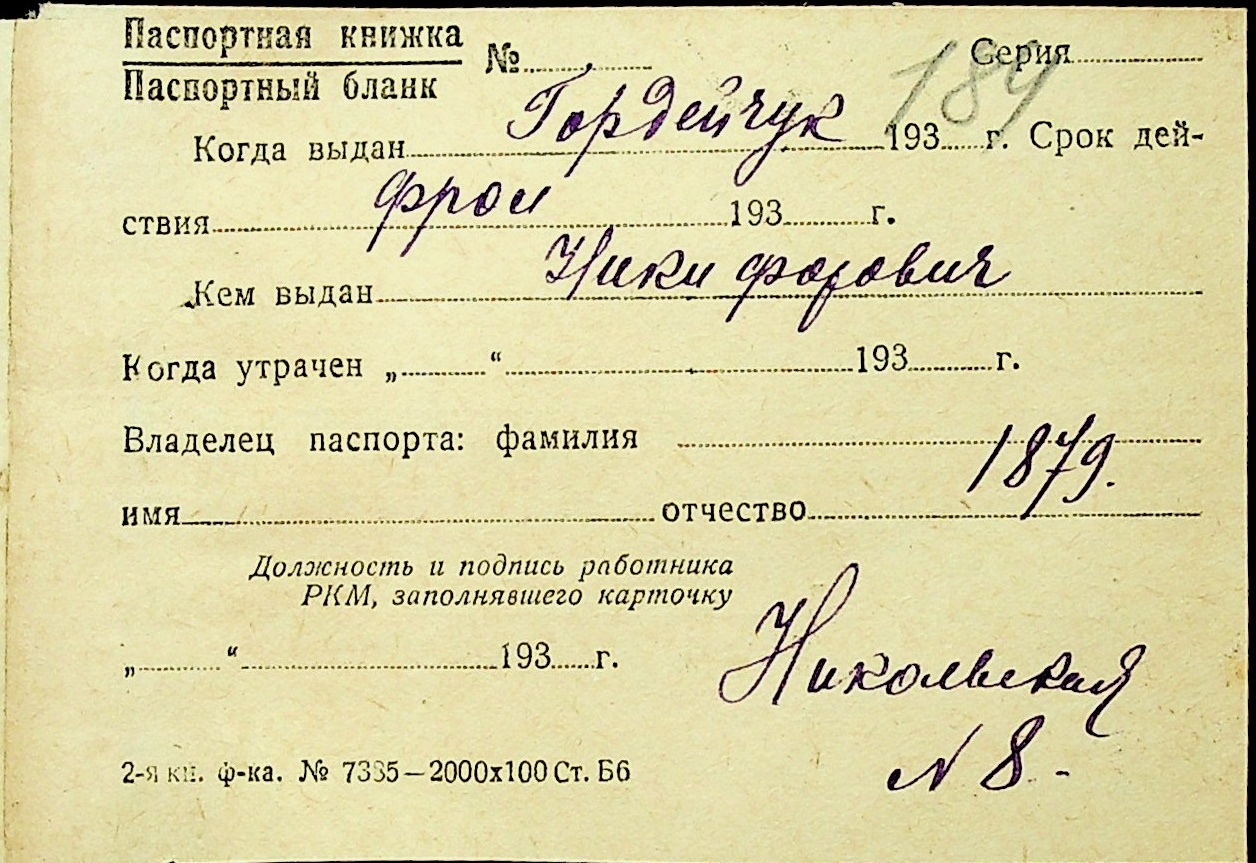 Паспортная книжка
Паспортный бланк
№ Серия
184
Гордейчук
Когда выдан 193 г. Срок дей-
Фрол
ствия 193 г.
Никифорович
Кем выдан
Когда утрачен „ “ 193 г.
Владелец паспорта: фамилия
1879.
имя отчество
Должность и подпись работника
РКМ, заполнявшего карточку
„ “ 193 г.
Никольская
N 8.-
2-я кн. ф-ка. № 7385—2000х100 Ст. Б6